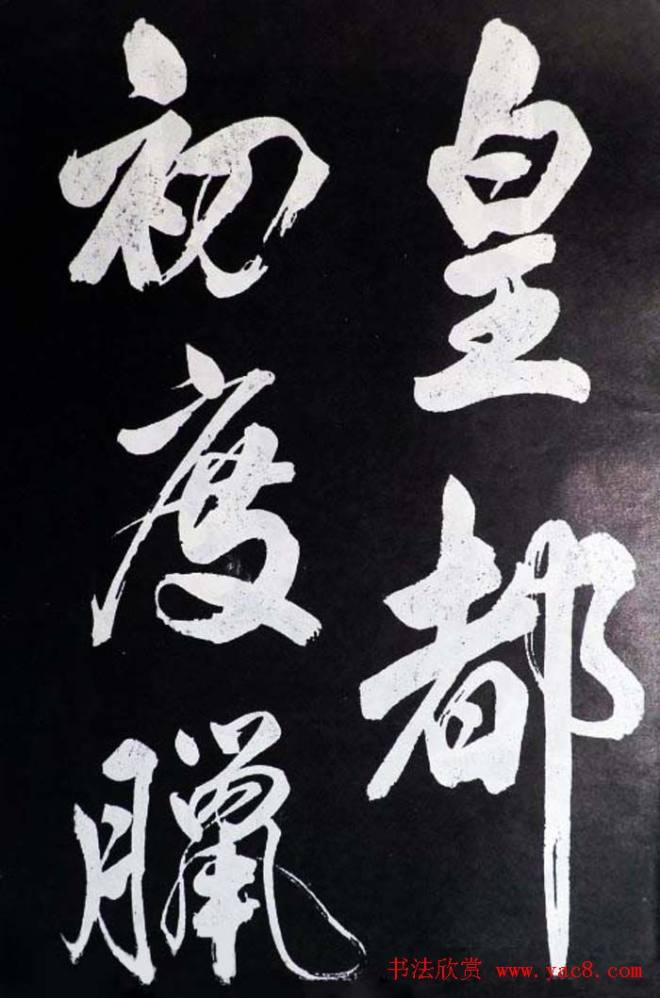 皇都
初度臘
书法欣赏 www.yac8.com